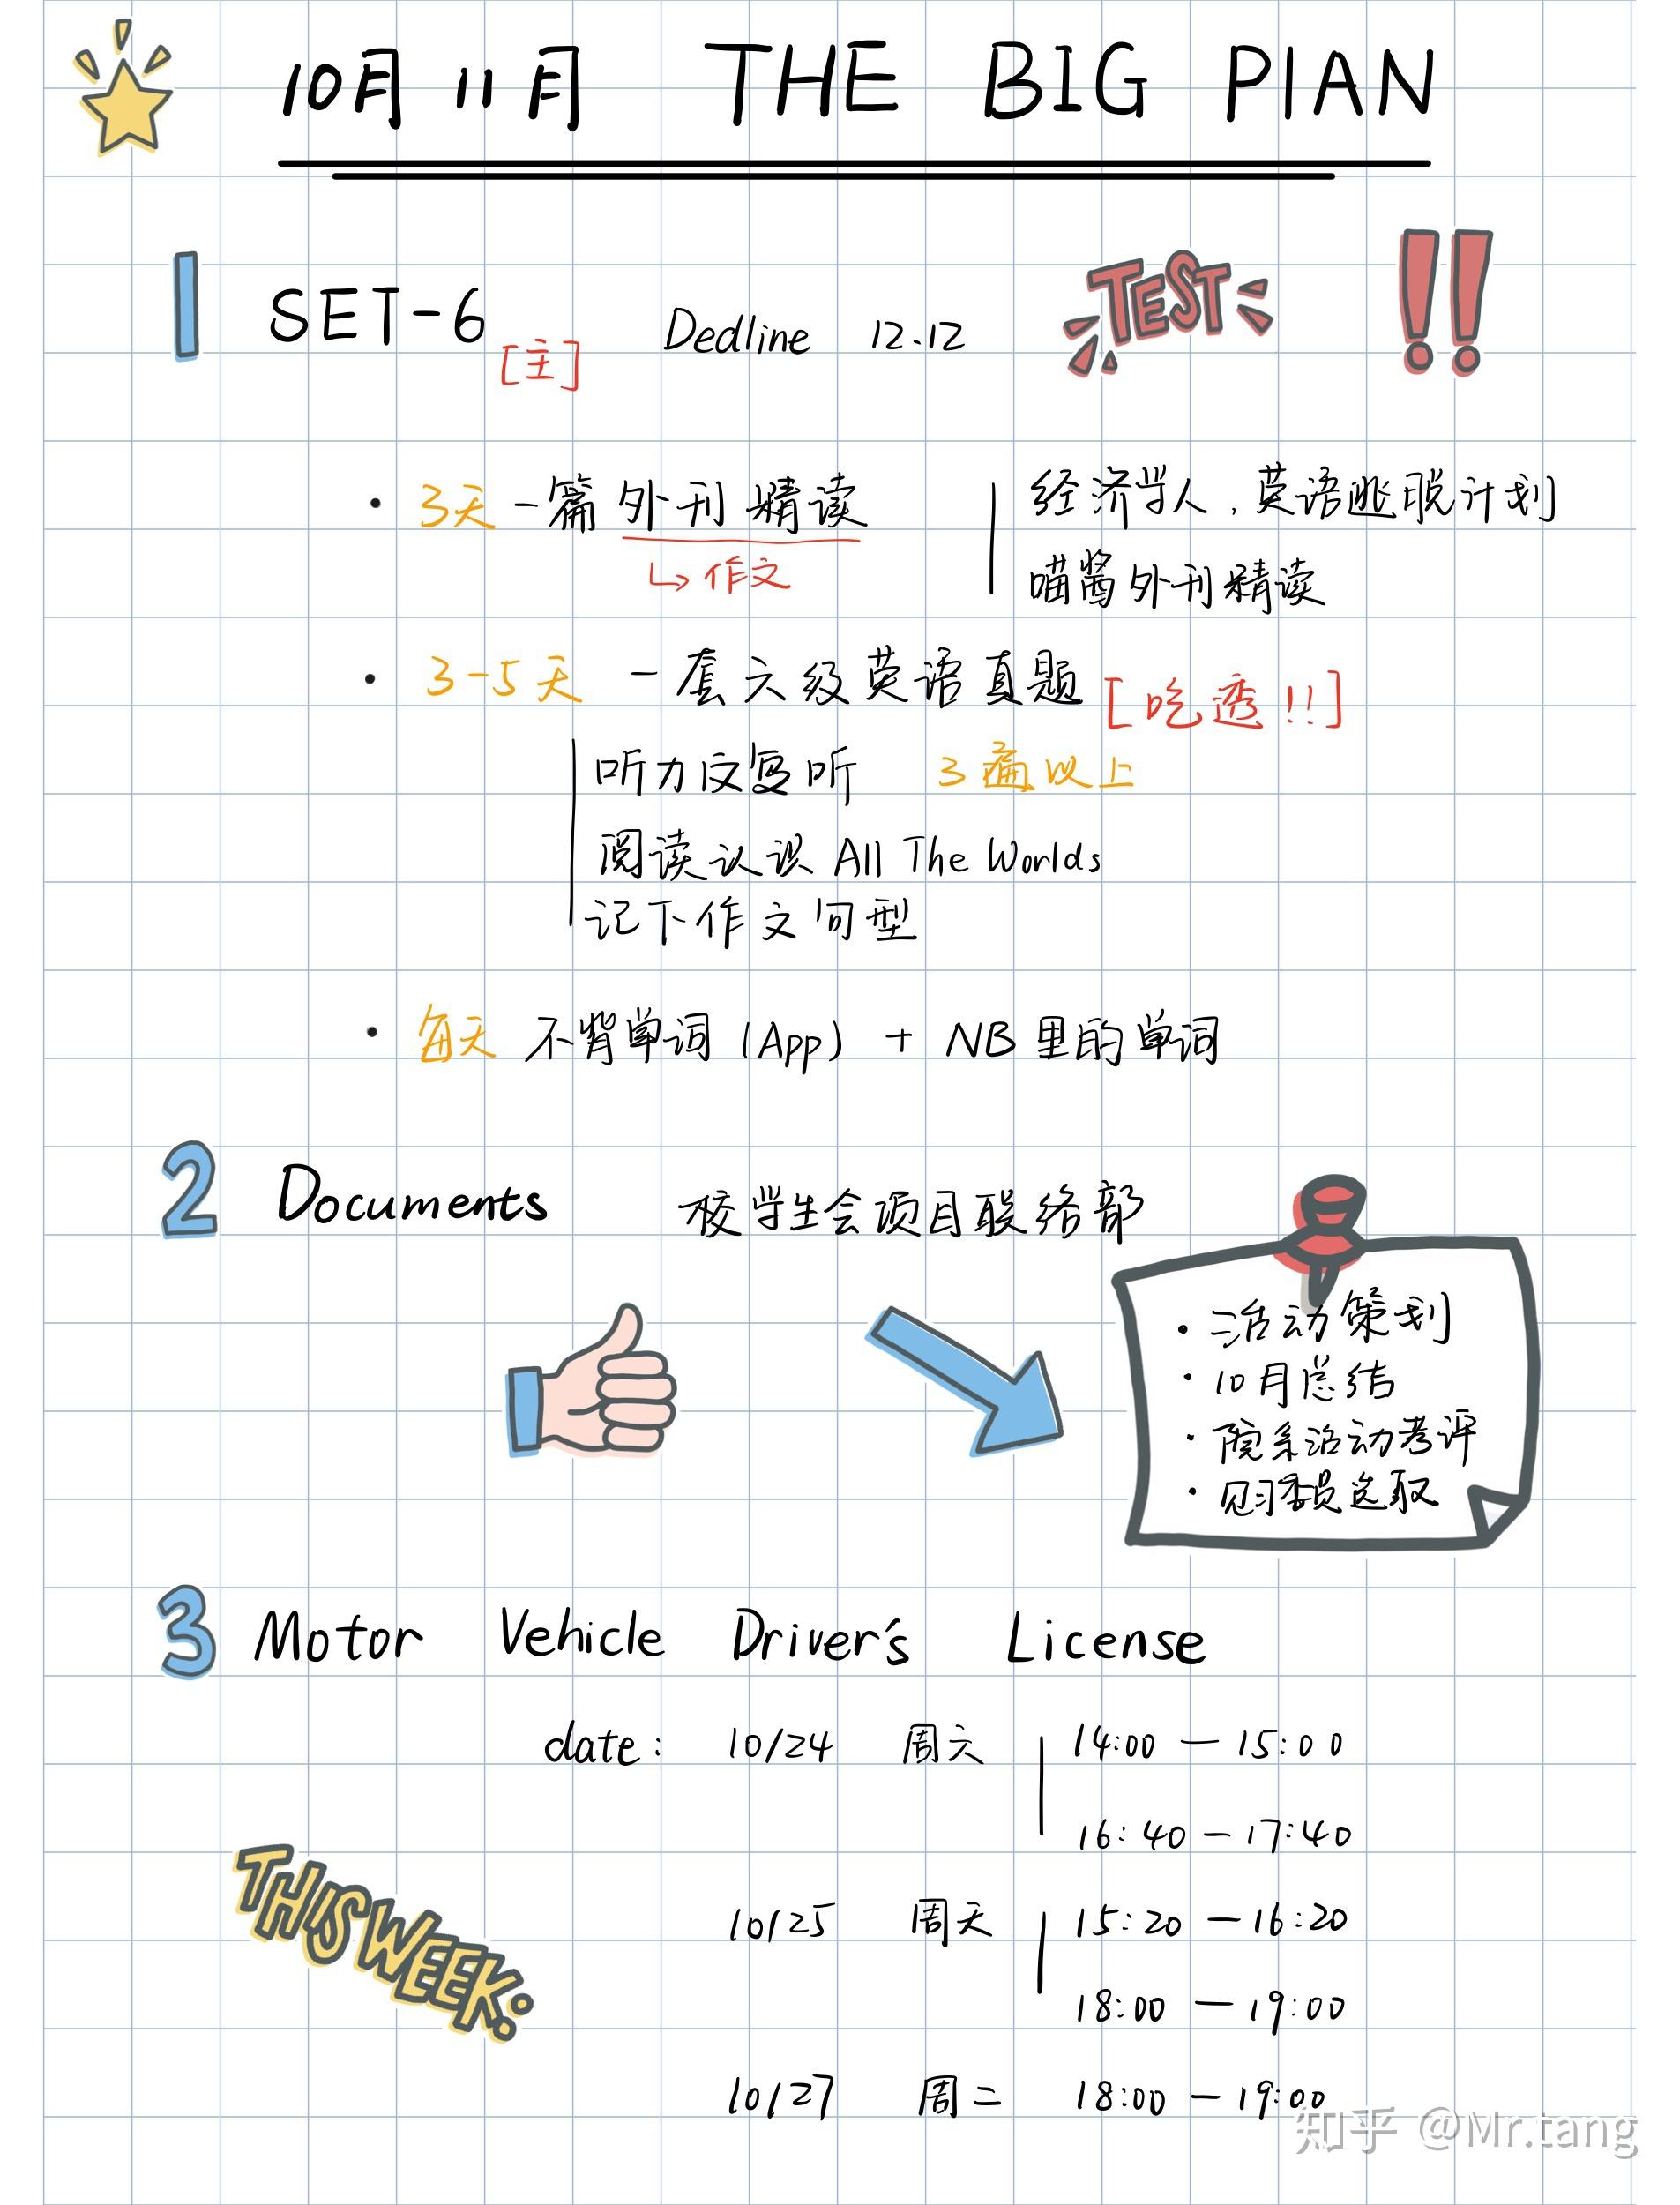 10月 11月 THE BIG PlAN
1 SET-6 [主] Dedline 12.12 TEST !!
· 3天 一篇 外刊精读 经济学人,英语逃脱计划
↳作文 喵酱外刊精读
· 3-5天 一套六级英语真题 [吃透!!]
听力反复听 3遍以上
阅读认识 All The Worlds
记下作文句型
· 每天 不背单词 (App) + NB里的单词
2 Documents 校学生会项目联络部
· 活动策划
· 10月总结
· 院系活动考评
· 见习委员选取
3 Motor Vehicle Driver's License
date: 10/24 周六 14:00 — 15:00
16:40 — 17:40
THIS WEEK:
10/25 周天 15:20 — 16:20
18:00 — 19:00
10/27 周二 18:00 — 19:00
知乎 @Mr.tang